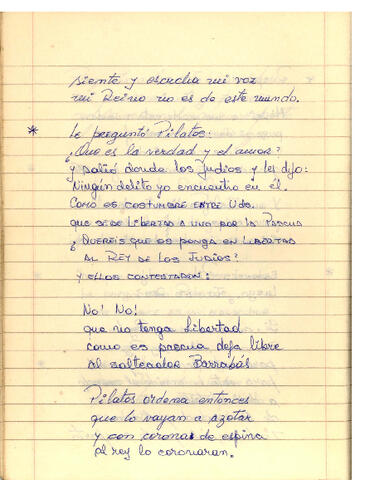 siente y escucha mi voz
mi Reino no es de este mundo.
* Le preguntó Pilatos:
¿Que es la verdad y el amor?
y salió donde los Judios y les dijo:
Ningún delito yo encuentro en él.
Como es costumbre entre Uds.
que se de libertad a uno por la Pascua
¿Quereis que os ponga en libertad
al Rey de los Judios?
y ellos contestaron:
No! No!
que no tenga libertad
como es pascua deja libre
al salteador Barrabás
Pilatos ordena entonces
que lo vayan a azotar
y con corona de espina
al rey lo coronaran.